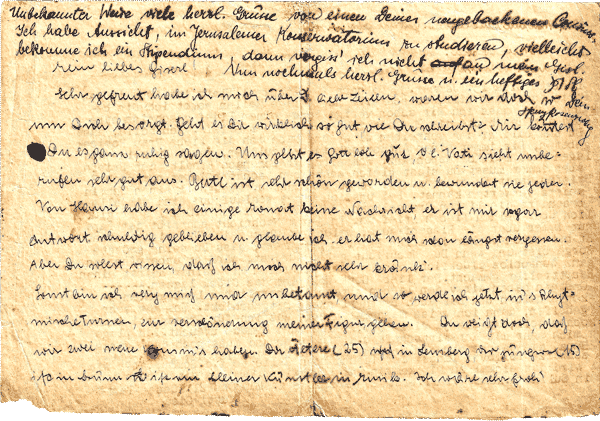 Unbekannter Weise viele herzl. Grüsse von einen Deines neugebackenen Cousins.
Ich habe Aussicht, in Jerusalemer Konservatorium zu studieren, vielleicht
bekomme ich ein Stipendium, dann vergiss' ich nicht auf mein
Nun nochmals herzl. Grüsse u. ein heftiges
Mein liebes
Sehr gefreut habe ich mich über Deine Zeilen, waren wir doch so
um Dich besorgt. Geht es Dir wirklich so gut wie Du schreibst? Mir kannst
Du es ganz ruhig sagen. Uns geht es Gott lob gut, d. l. Vati sieht unbe-
rufen sehr gut aus. Bertl ist sehr schön geworden u. bewundert sie jeder.
Von Hansi habe ich einige Monat keine Nachricht, er ist mir sogar
Antwort schuldig geblieben u. glaube ich, er hat mich schon längst vergessen.
Aber Du wirst wissen, dass ich mich nicht sehr kränke.
Sonst bin ich mit mir und so werde ich jetzt in's Rhyt-
mischeturnen, zur Verschönerung meiner Figur gehen. Du weisst doch, dass
wir zwei neue Cousins haben. Der ältere (25) in Lemberg der jüngere (15)
ist in Brünn u. ist ein kleiner Künstler in Musik. Ich wäre sehr froh